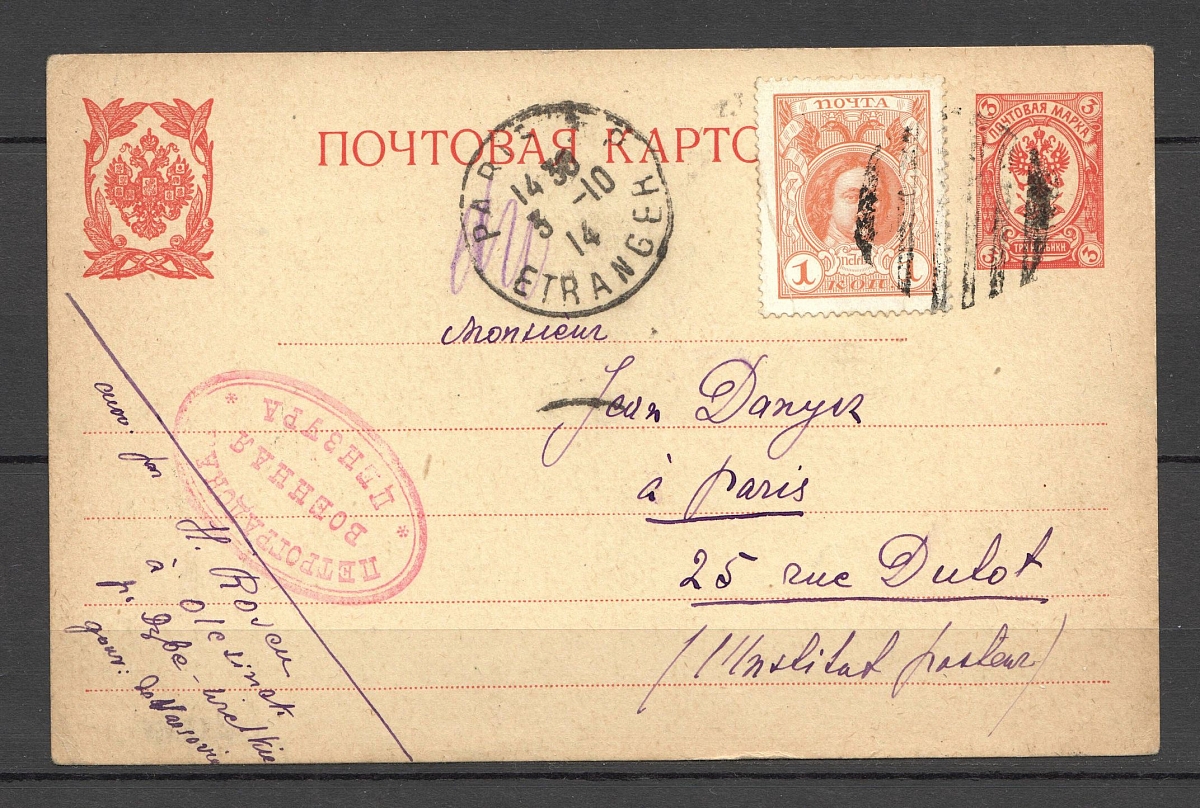 ПОЧТОВАЯ КАРТО
ПОЧТА
1 1
КОП.
3 3
ПОЧТОВАЯ МАРКА
3 3
PARIS
14 30
3 -10
14
ETRANGER
Monsieur
Jean Danysz
à Paris
25 rue Dutot
(Institut Pasteur)
ПЕТРОГРАДСКАЯ
* ВОЕННАЯ *
ЦЕНЗУРА
H. Rosen
à Olesinek
p. Dzbe-Wielkie
gouv: de Varsovie